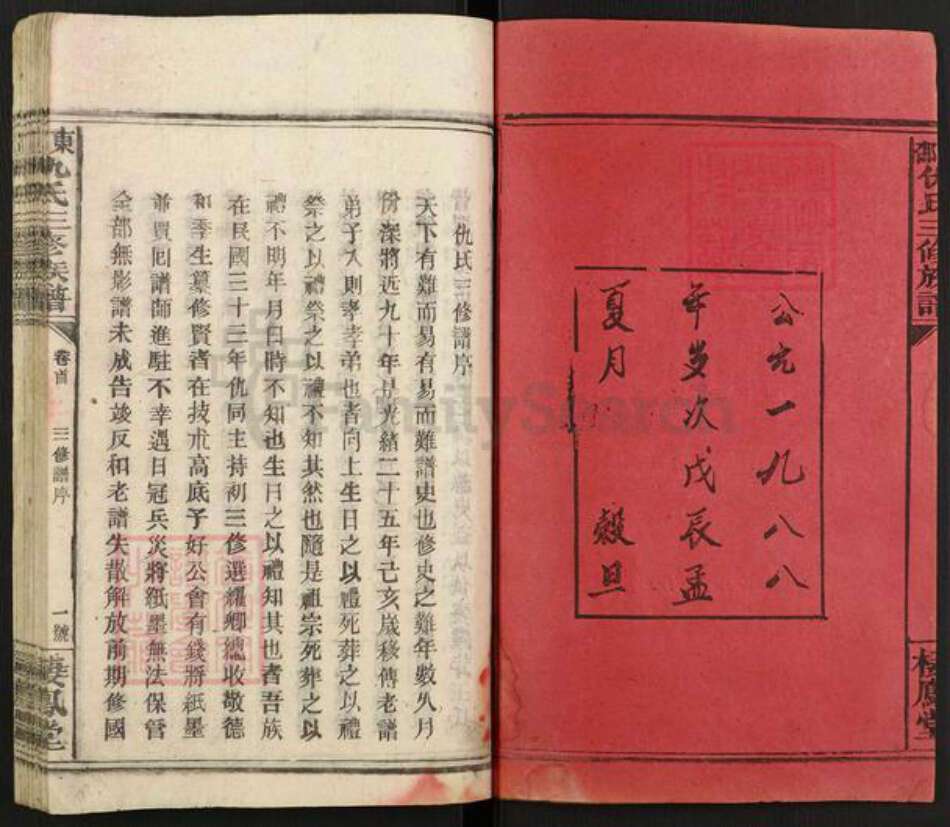 公元一九八八
年岁次戊辰孟
夏月 穀旦
三修族譜
樓鳳堂
仇氏三修譜序
天下有難而易有易而難譜史也修史之難年數久月
份深將近九十年是光緒二十五年己亥歲移傳老譜
弟子入則孝孝弟也者向上生日之以禮死葬之以禮
祭之以禮祭之以禮不知其然也隨是祖宗死葬之以
禮不明年月日時不知也生日之以禮知其也者吾族
在民國三十三年仇同主持初三修選耀卿總收敬德
和季生纂修賢者在技术高底予好公會有錢將紙墨
並買囘譜師進駐不幸遇日冠兵災將紙墨無法保管
全部無影譜未成告竣反和老譜失散解放前期修國
東仇氏三修族譜
卷首
三修譜序
一號
樓鳳堂
FamilySearch